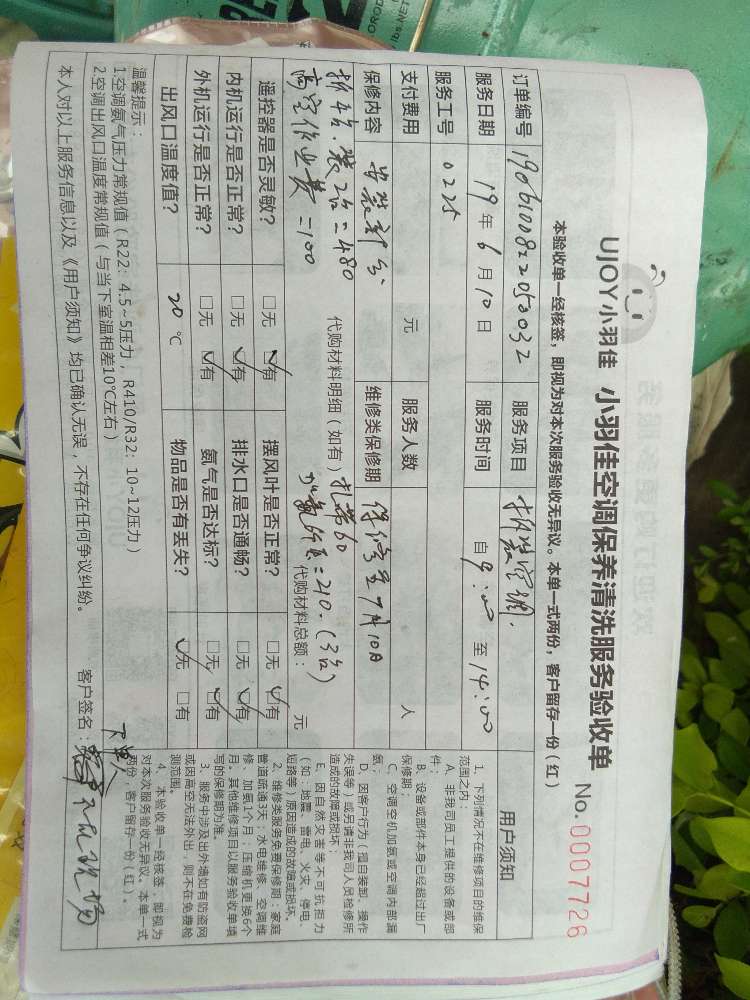 UJOY小羽佳 小羽佳空调保养清洗服务验收单
No. 0007726
本验收单一经核签，即视为对本次服务验收无异议。本单一式两份，客户留存一份（红）
订单编号 1906100822050032 服务项目 拆装空调. 用户须知
服务日期 19 年 6 月 10 日 服务时间 自 9:00 至 14:00
服务工号 0225
支付费用 元 服务人数 人
保修内容 安装部分. 维修类保修期 保修至7月10日
拆4台.装2台=480 代购材料明细（如有） 扎带60
高空作业费=100 加氟 =210.(3台) 代购材料总额： 元
遥控器是否灵敏? □无 ☑有 摆风叶是否正常? □无 ☑有
内机运行是否正常? □无 ☑有 排水口是否通畅? □无 ☑有
外机运行是否正常? □无 ☑有 氨气是否达标? □无 ☑有
出风口温度值? 20 ℃ 物品是否有丢失? ☑无 □有
温馨提示：
1.空调氨气压力常规值（R22：4.5~5压力，R410/R32：10~12压力）
2.空调出风口温度常规值（与当下室温相差10℃左右）
本人对以上服务信息以及《用户须知》均已确认无误，不存在任何争议纠纷。 客户签名： 下单人 不在现场
1、下列情况不在维修项目的维保
范围之内：
A、非我司员工提供的设备或部
件；
B、设备或部件本身已经超过出厂
保修期；
C、空调空机加氨或空调内部漏
氨；
D、因客户行为（擅自装卸、操作
失误等）或另请非我司人员检修所
造成的故障或损坏；
E、因自然灾害等不可抗拒力
（如：地震、雷电、火灾、停电、
短路等）原因造成的故障或损坏。
2、维修类服务免费保修期：家庭
管道疏通3天；水电维修、空调维
修、加氨1个月；压缩机更换6个
月。其他维修项目以服务验收单填
写的保修期为准。
3、服务中涉及出外墙如有防盗网
或因高空无法外出，则不在免费检
测范围。
4、本验收单一经核签，即视为
对本次服务验收无异议。本单一式
两份，客户留存一份（红）。